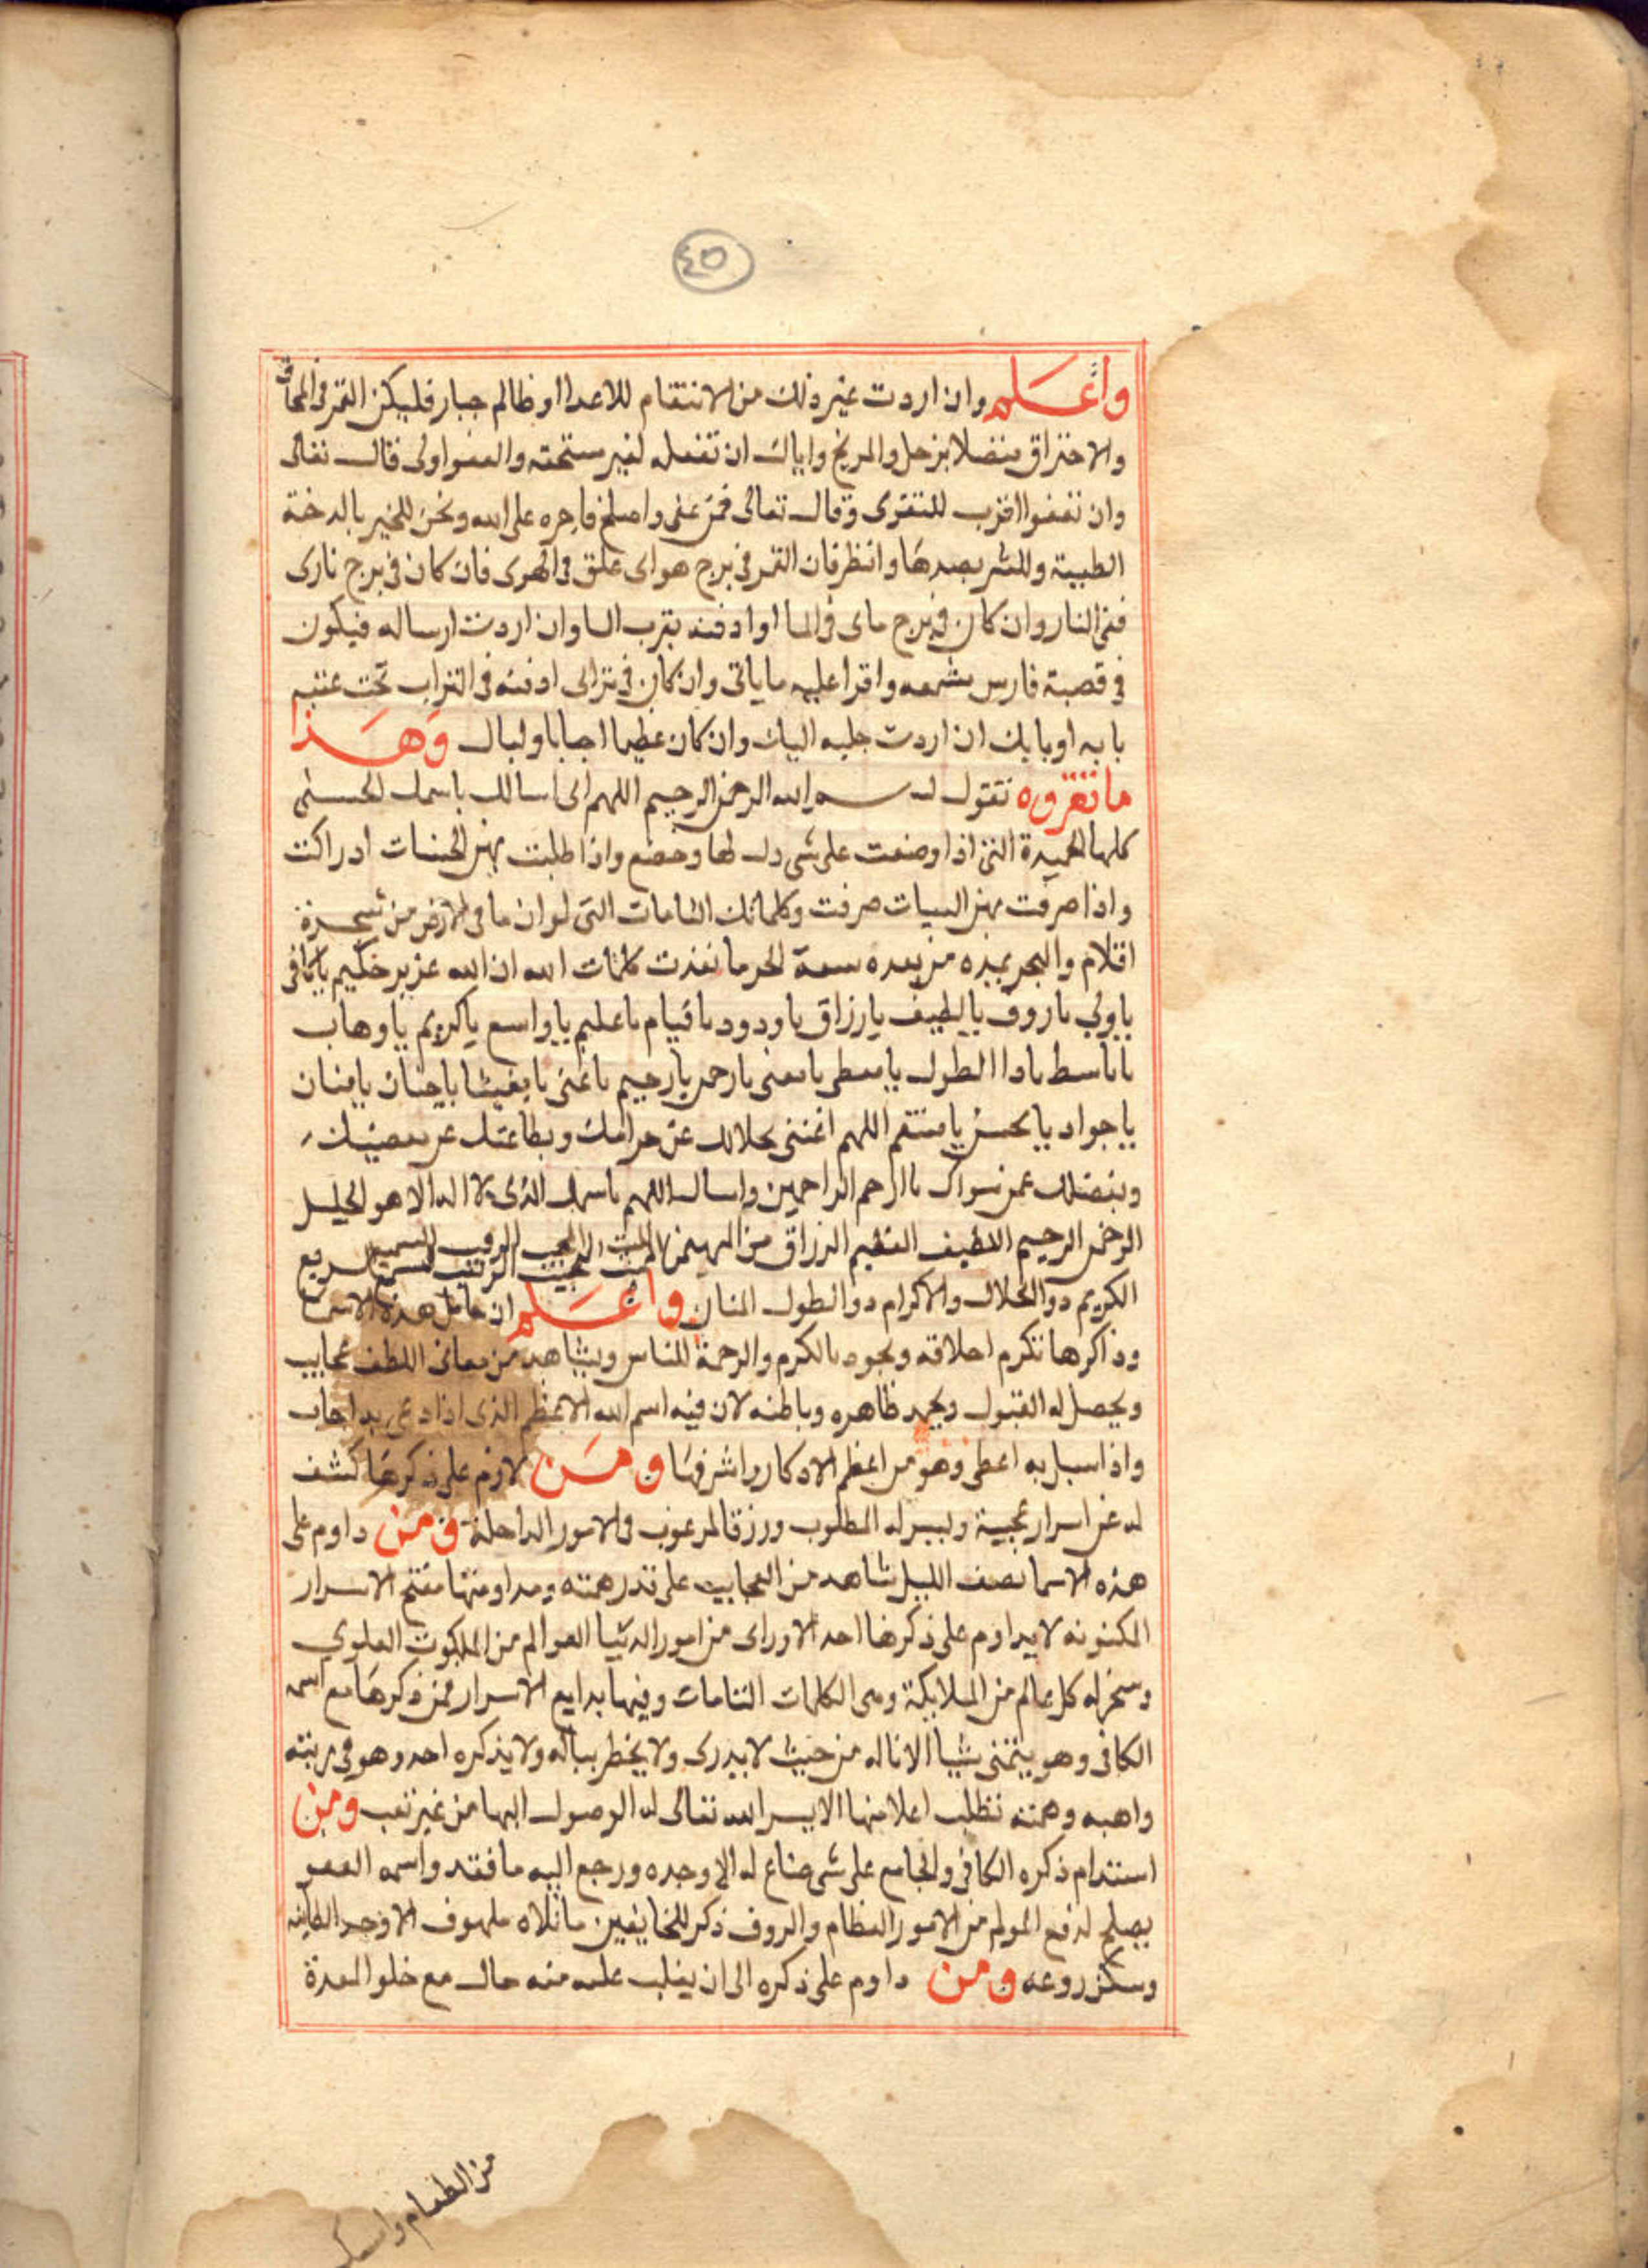 ٤٥
واعلم وان اردت غير ذلك من الانتقام للاعدا او ظالم جبار فليكن القمر في المحاق
والاحتراق متصلا بزحل والمريخ واياك ان تفعله لغير مستحقه والعفو اولى قال تعالى
وان تعفوا اقرب للتقوى وقال تعالى فمن عفى واصلح فاجره على الله وبخر للخير بالدخنة
الطيبة وللشر بضدها وانظر فان القمر في برج هواى علق فى الهوى فان كان فى برج نارى
ففى النار وان كان في برج ماى في الما او ادفنه بقرب الما وان اردت ارساله فيكون
في قصبة فارس بشمعه واقرا عليه ما ياتى وان كان في ترابى ادفنه فى التراب تحت عتبه
بابه او بابك ان اردت جلبه اليك وان كان عظيما اجابا ولبال وهذا
ما تقروه تقول بسم الله الرحمن الرحيم اللهم انى اسالك باسمك الحسنى
كلها الحميدة التى اذا وضعت على شى دل لها وخضع واذا طلبت بهن الحسنات ادراكت
واذا صرفت بهن السيات صرفت وكلماتك التامات التى لو ان ما فى الارض من شجرة
اقلام والبحر يمده من بعده سبعة ابحر ما نفدت كلمات الله ان الله عزيز حكيم يا كافى
يا ولي يا روف يا لطيف يا رزاق يا ودود يا قيام يا عليم يا واسع يا كريم يا وهاب
يا باسط يا دا الطول يا معطى يا مغنى يا رحمن يا رحيم يا غنى يا مغيثا يا حنان يا منان
يا جواد يا محسن يا منتقم اللهم اغننى بحلالك عن حرامك وبطاعتك عن معصيتك
وبفضلك عمن سواك يا ارحم الراحمين واسالك اللهم باسمك الذى لا اله الا هو الجليل
الرحمن الرحيم اللطيف العظيم الرزاق من المهيمن المقيت المجيب الرقيب السميع السريع
الكريم ذو الجلال والاكرام ذو الطول المنان واعلم ان حامل هذه الاسما
وذاكرها تكرم اخلاقه ويجود بالكرم والرحمة للناس ويشاهد من معانى اللطف عجايب
ويحصل له القبول ويجمد ظاهره وباطنه لان فيه اسم الله الاعظم الذى اذا دعى به اجاب
واذا سيل به اعطى وهو من اعظم الادكار واشرفها ومن لازم على ذكرها كشف
له عن اسرار عجيبة ويسر له المطلوب ورزق المرغوب والامور الداخلة ومن داوم على
هذه الاسما نصف الليل شاهد من العجايب على قدر همته ومداومتها مفتح الاسرار
المكنونه لا يداوم على ذكرها احد الا وراى من امور الدنيا العوالم من الملكوت العلوي
وسخر له كل عالم من الملايكة وهى الكلمات التامات وفيها بدايع الاسرار فمن ذكرها مع اسمه
الكافى وهو يتمنى شيا الا ناله من حيث لا يدرى ولا يخطر بباله ولا يذكره احد وهو في رتبته
واهبه وهمته تطلب اعلا منها الا يسر الله تعالى له الوصول اليها من غير تعب ومن
استدام ذكره الكافى والجامع على شى ضاع له الا وجده ورجع اليه ما فقد واسمه العفو
يصلح لدفع المولم من الامور العظام والروف ذكر للخايفين ما تلاه ملهوف الا وجد الطمانينه
وسكن روعه ومن داوم على ذكره الى ان يغلب عليه منه حال مع خلو المعدة
من الطعام وامسك